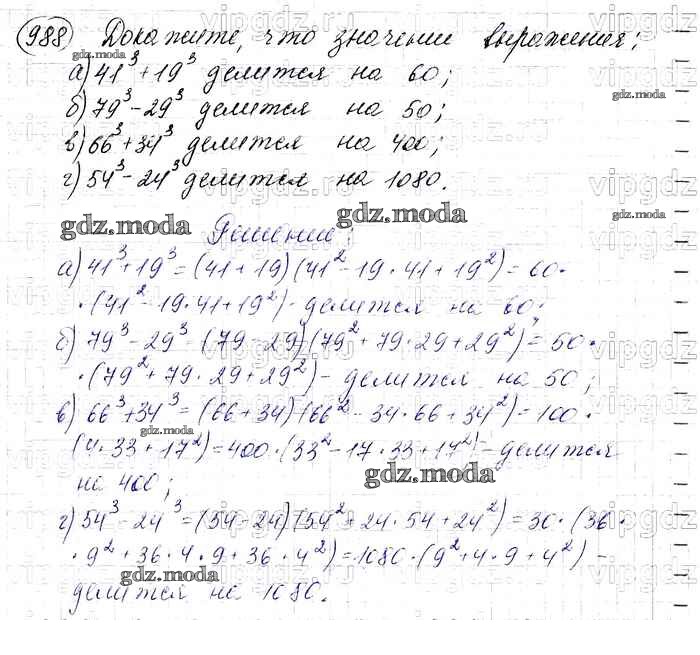 988 Докажите, что значение выражения:
а) 41³ + 19³ делится на 60;
б) 79³ - 29³ делится на 50;
в) 66³ + 34³ делится на 400;
г) 54³ - 24³ делится на 1080.
Решение:
а) 41³ + 19³ = (41 + 19)(41² - 19·41 + 19²) = 60·
·(41² - 19·41 + 19²) - делится на 60;
б) 79³ - 29³ = (79 - 29)(79² + 79·29 + 29²) = 50·
·(79² + 79·29 + 29²) - делится на 50;
в) 66³ + 34³ = (66 + 34)(66² - 34·66 + 34²) = 100·
(4·33 + 17²) = 400·(33² - 17·33 + 17²) - делится
на 400;
г) 54³ - 24³ = (54 - 24)(54² + 24·54 + 24²) = 30·(36·
·9² + 36·4·9 + 36·4²) = 1080·(9² + 4·9 + 4²) -
делится на 1080.
gdz.moda
vipgdz.ru